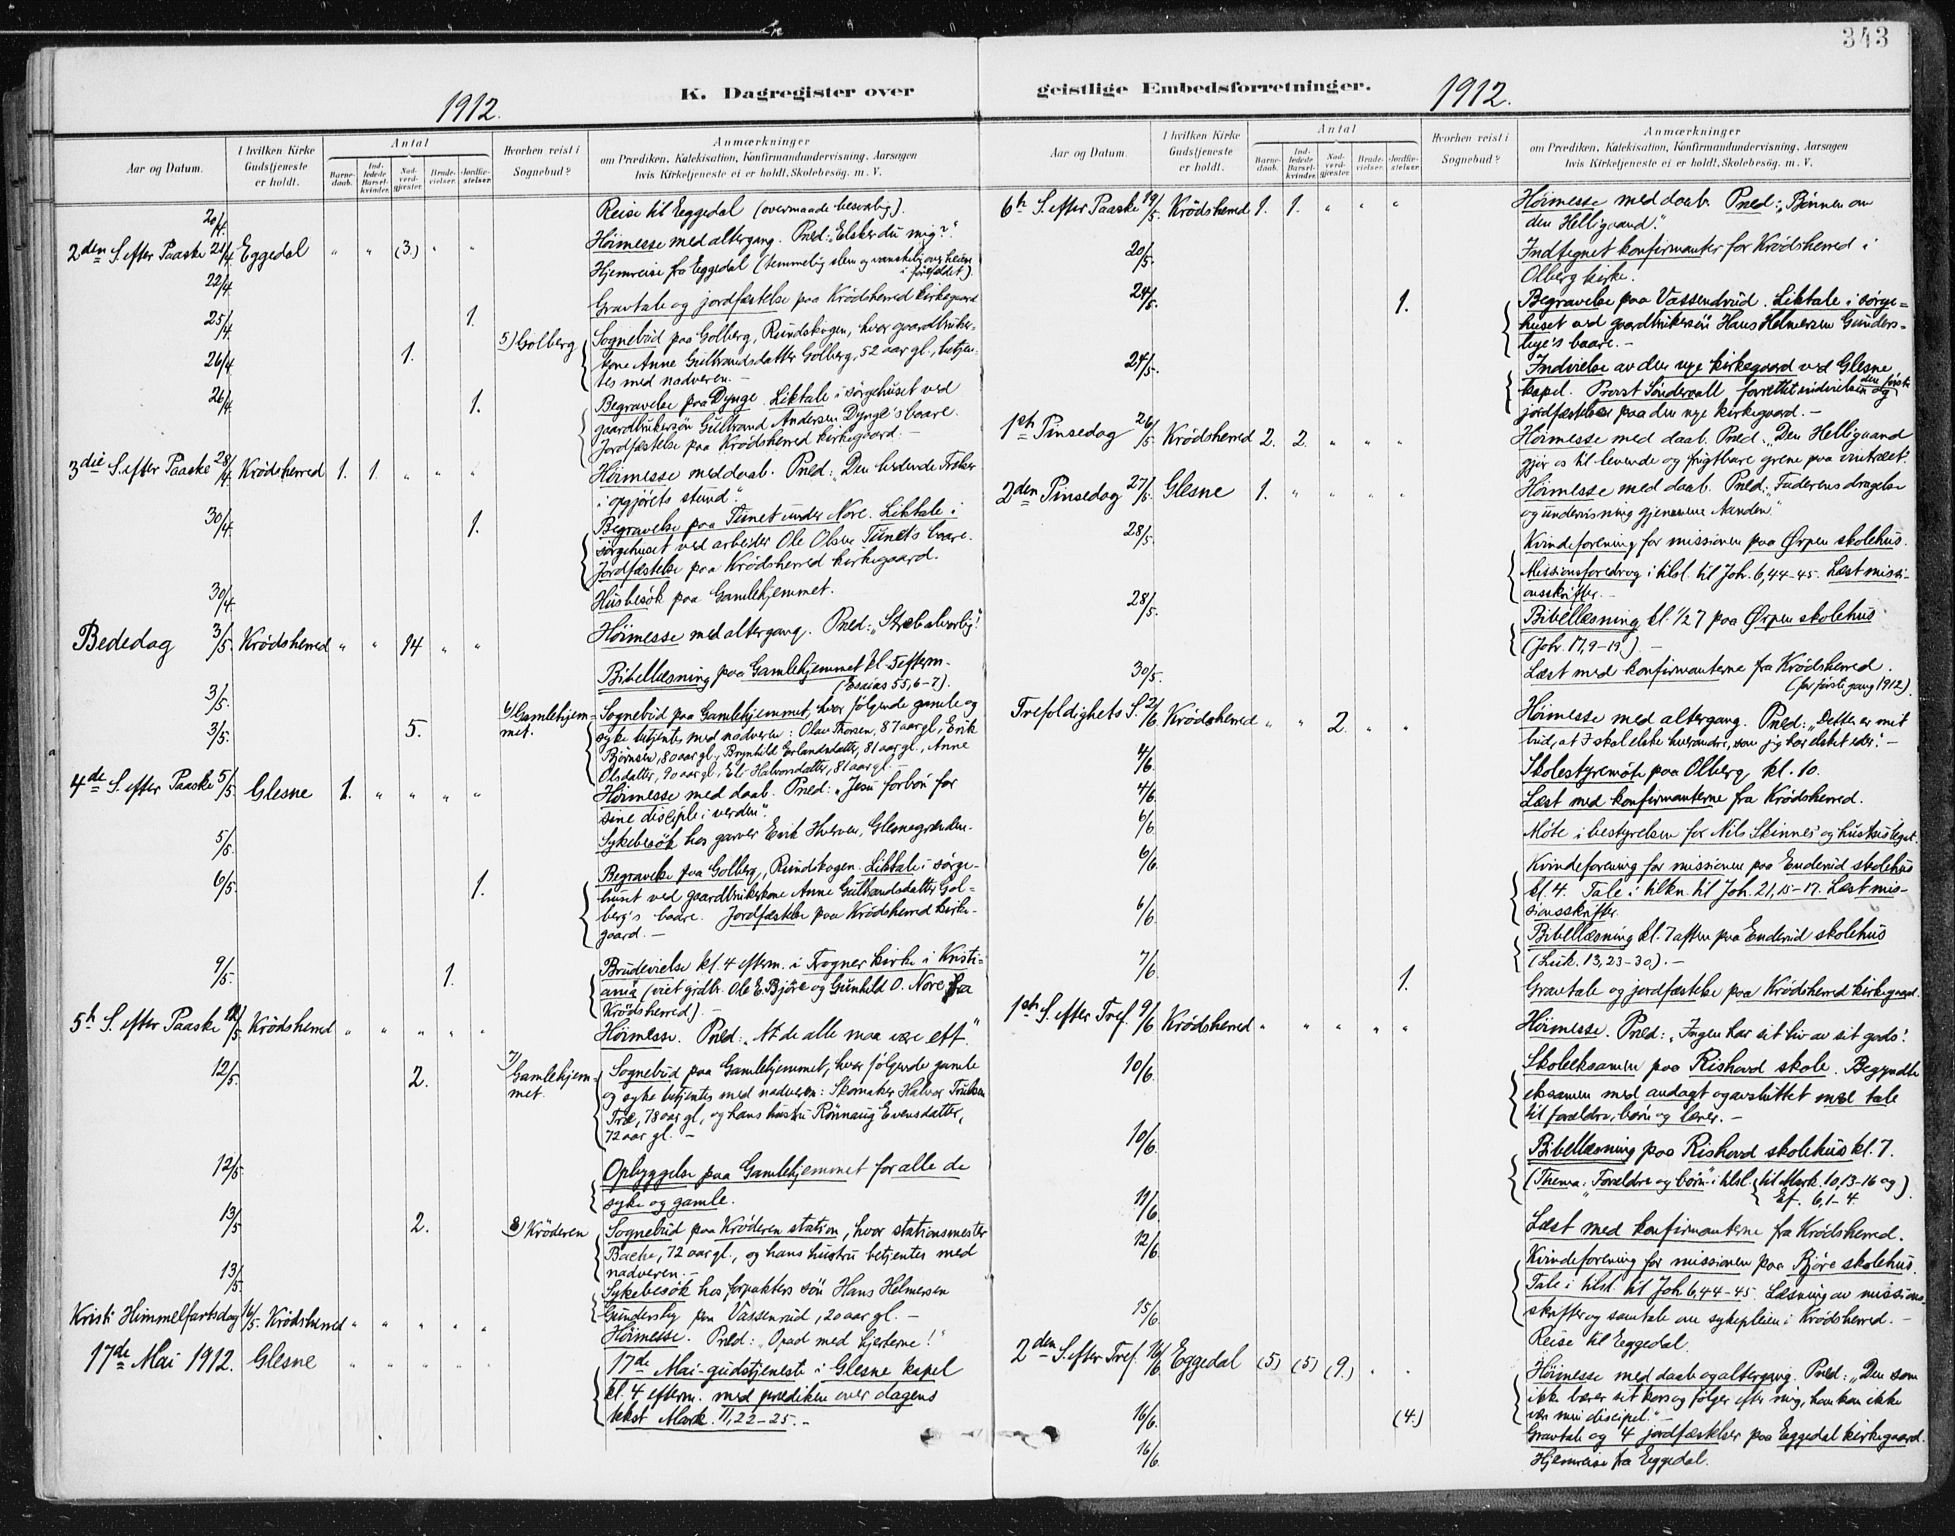 343
K. Dagregister over
geistlige Embedsforretninger.
1912.
1912.
Aar og Datum.
I hvilken Kirke Gudstjeneste er holdt.
Antal
Barnedaab.
Indledede Barselkvinder.
Nadverdgjester.
Brudevielser.
Jordfæstelser.
Hvorhen reist i Sognebud?
Anmærkninger
om Prædiken, Katekisation, Konfirmandundervisning, Aarsagen
hvis Kirketjeneste ei er holdt, Skolebesög. m. V.
20/4. Reise til Eggedal (overmaade besværlig).
2den S. efter Paaske 21/4. Eggedal " " (3) " " Höimesse med altergang. Præd: "Elsker du mig?"
22/4. Hjemreise fra Eggedal (temmelig slem og vanskelig over heien
i förefaldet).
25/4. 1. Gravtale og jordfæstelse paa Krödsherred kirkegaard
26/4 1. 5) Golberg Sognebud paa Golberg, Rundskogen, hvor gaardbruker-
kone Anne Gulbrandsdatter Golberg, 52 aar gl., betjen-
tes med nadveren. -
26/4. 1. Begravelse paa Dynge. Liktale i sørgehuset ved
gaardbrukersön Gulbrand Andersen Dynge's baare.
Jordfæstelse paa Krödsherred kirkegaard. -
3die S. efter Paaske 28/4. Krödsherred 1. 1. " " " Höimesse med daab. Præd: "Den bedende Frelser
i opgjørets stund".
30/4. 1. Begravelse paa Tunet under Nore. Liktale i
sørgehuset ved arbeider Ole Olsen Tunet's baare.
Jordfæstelse paa Krödsherred kirkegaard.
30/4. Husbesök paa Gamlehjemmet.
Bededag 3/5. Krödsherred " " 14 " " Höimesse med altergang. Præd: "Stræb alvorlig!"
3/5. Bibellæsning paa Gamlehjemmet kl. 5 efterm.
(Esaias 55, 6-7).
3/5. 5. 6) Gamlehjemmet. Sognebud paa Gamlehjemmet, hvor følgende gamle og
syke betjentes med nadveren: Olav Thorsen, 87 aar gl., Erik
Björnsen, 80 aar gl., Brynhild Erlandsdatter, 81 aar gl., Anne
Olsdatter, 90 aar gl., Eli Halvorsdatter, 81 aar gl. -
4de S. efter Paaske 5/5. Glesne 1. " " " " Höimesse med daab. Præd: "Jesu forbön for
sine disciple i verden".
5/5. Sykebesök hos garver Erik Hverven, Glesnegrænden.
6/5. 1. Begravelse paa Golberg, Rundskogen. Liktale i sørge-
huset ved gaardbrukerkone Anne Gulbrandsdatter Gol-
berg's baare. Jordfæstelse paa Krödsherred kirke-
gaard. -
9/5. 1. Brudevielse kl. 4 efterm. i Frogner kirke i Kristi-
ania (viet grdbr. Ole E. Björe og Gunhild O. Nore fra
Krödsherred). -
5te S. efter Paaske 12/5. Krödsherred " " " " " Höimesse. Præd: "At de alle maa være ett".
12/5. 2. 7) Gamlehjemmet. Sognebud paa Gamlehjemmet, hvor følgende gamle
og syke betjentes med nadveren: Skomaker Halvor Trulsen
Træ, 78 aar gl., og hans hustru Rönnaug Evensdatter,
72 aar gl. -
12/5. Opbyggelse paa Gamlehjemmet for alle de
syke og gamle.
13/5 2. 8) Kröderen Sognebud paa Kröderen station, hvor stationsmester
Bache, 72 aar gl., og hans hustru betjentes med
nadveren. -
13/5. Sykebesök hos forpakters sön Hans Helmersen
Gundersby paa Vassenrud, 20 aar gl. -
Kristi Himmelfartsdag 16/5. Krödsherred " " " " " Höimesse. Præd: "Opad med hjerterne!"
17de Mai 1912. Glesne " " " " " 17de Mai-gudstjeneste i Glesne kapel
kl. 4 efterm. med prædiken over dagens
tekst Mark. 11, 22-25. -
Aar og Datum.
I hvilken Kirke Gudstjeneste er holdt.
Antal
Barnedaab.
Indledede Barselkvinder.
Nadverdgjester.
Brudevielser.
Jordfæstelser.
Hvorhen reist i Sognebud?
Anmærkninger
om Prædiken, Katekisation, Konfirmandundervisning, Aarsagen
hvis Kirketjeneste ei er holdt, Skolebesög. m. V.
6te S. efter Paaske 19/5. Krödsherred 1. 1. " " " Höimesse med daab. Præd: "Bönnen om
den Helligaand".
20/5. Indtegnet konfirmanter for Krödsherred i
Olberg kirke.
24/5. 1. Begravelse paa Vassendrud. Liktale i sørge-
huset ved gaardbrukersön Hans Helmersen Gunders-
bye's baare. -
24/5. Indvielse av den nye kirkegaard ved Glesne
kapel. Provst Söndervall forrettet indvielsen og den förste
jordfæstelse paa den nye kirkegaard. -
1ste Pinsedag 26/5. Krödsherred 2. 2. " " " Höimesse med daab. Præd: "Den Helligaand
gjör os til levende og frugtbare grene paa vintræet".
2den Pinsedag 27/5. Glesne 1. " " " " Höimesse med daab. Præd: "Faderens dragelse
og undervisning gjennem Aanden"
28/5. Kvindeforening for missionen paa Ørpen skolehus.
Missionsforedrag i tilsl. til Joh. 6, 44-45. Læst missi-
onsskrifter. -
28/5. Bibellæsning kl. 1/2 7 paa Ørpen skolehus
(Joh. 17, 9-19). -
30/5. Læst med konfirmanterne fra Krödsherred.
(for første gang 1912).
Trefoldigheds S. 2/6. Krödsherred " " 2. " " Höimesse med altergang. Præd: "Dette er mit
bud, at I skal elske hverandre, som jeg har elsket eder". -
4/6. Skolestyremöte paa Olberg kl. 10.
4/6. Læst med konfirmanterne fra Krödsherred.
6/6. Möte i bestyrelsen for Nils Skinnes' og hustrus legat.
6/6. Kvindeforening for missionen paa Enderud skolehus
kl. 4. Tale i tilkn. til Joh. 21, 15-17. Læst mis-
sionsskrifter.
6/6. Bibellæsning kl. 7 aften paa Enderud skolehus
(Luk. 13, 23-30). -
7/6. 1. Gravtale og jordfæstelse paa Krödsherred kirkegaard.
1ste S. efter Tref. 9/6 Krödsherred " " " " " Höimesse. Præd: "Ingen har sit liv av sit gods".
10/6. Skoleeksamen paa Rishovd skole. Begyndte
eksamen med andagt og avsluttet med tale
til forældre, börn og lærer. -
10/6. Bibellæsning paa Rishovd skolehus kl. 7.
(Thema: "Forældre og börn" i tilsl. til Mark. 10, 13-16 og
Ef. 6, 1-4).
11/6. Læst med konfirmanterne fra Krödsherred.
12/6. Kvindeforening for missionen paa Björe skolehus.
Tale i tilsl. til Joh 6, 44-45. Læsning av missions-
skrifter og samtale om sykepleien i Krödsherred. -
15/6. Reise til Eggedal.
2den S. efter Tref. 16/6. Eggedal (5) (5) (9.) " " Höimesse med daab og altergang. Præd: "Den som
ikke bærer sit kors og følger efter mig, han kan ikke
være min discipel." -
16/6. (4.) Gravtale og 4 jordfæstelser paa Eggedal kirkegaard.
16/6. Hjemreise fra Eggedal.